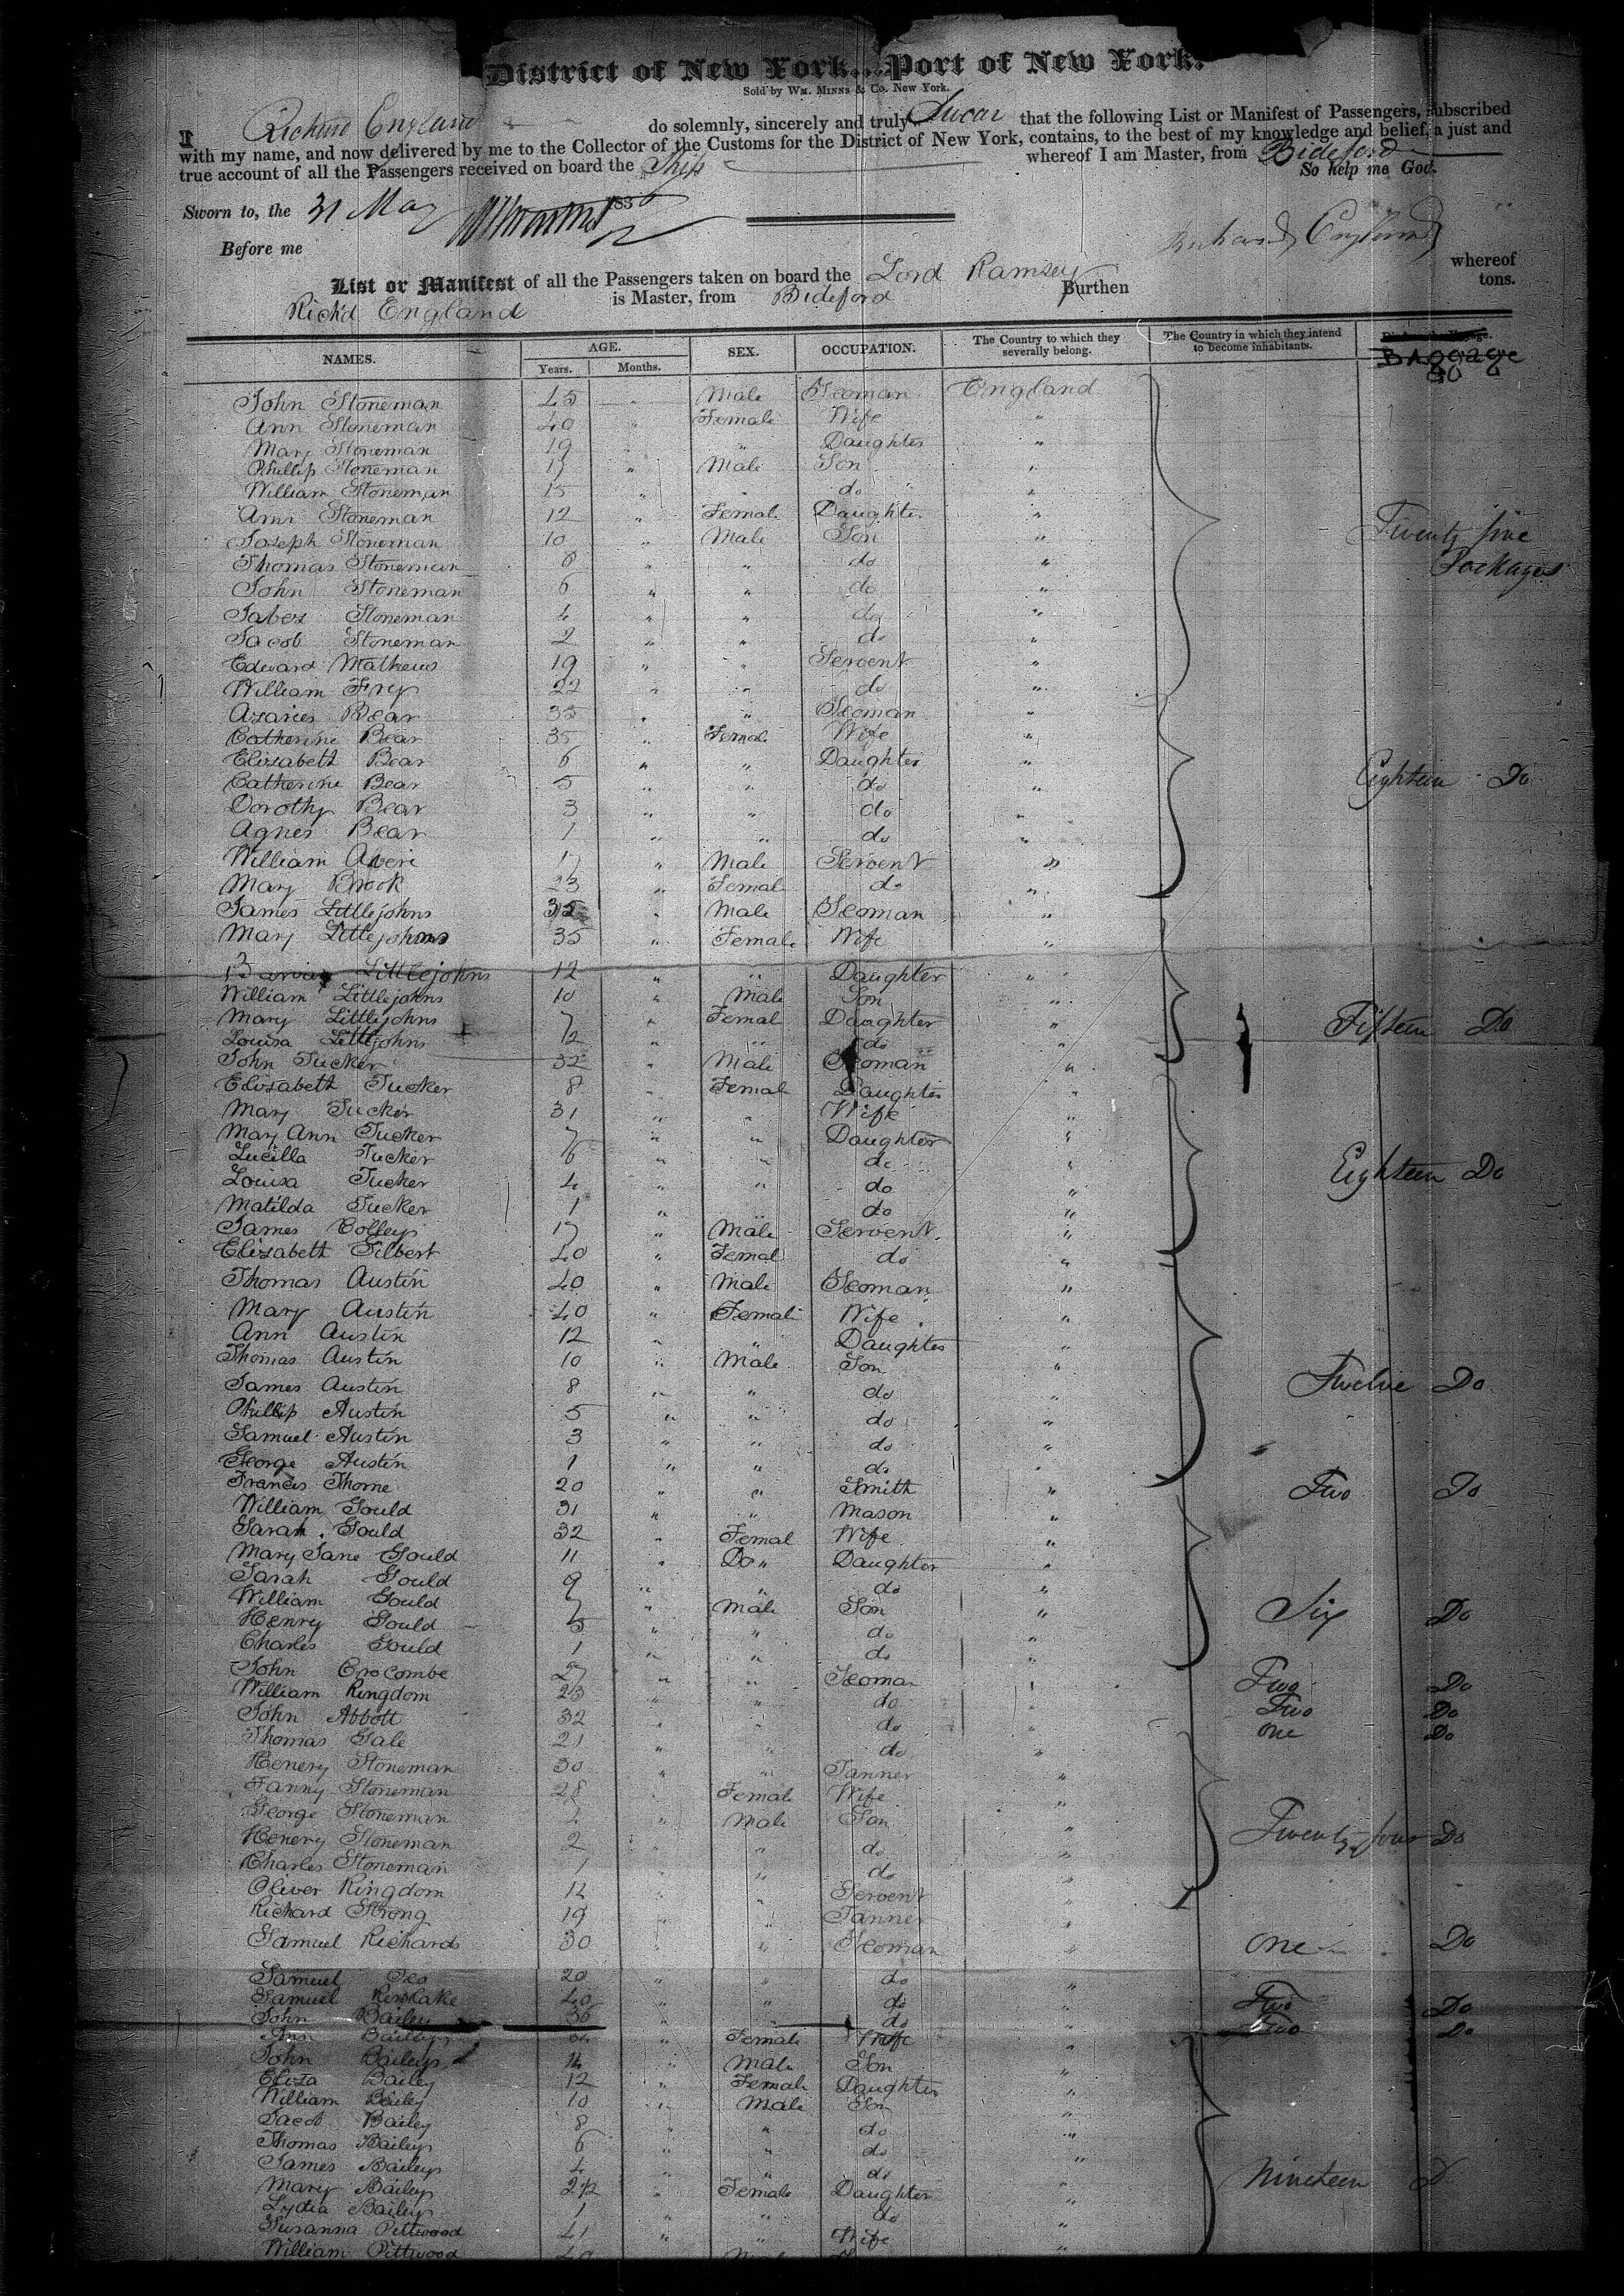 District of New York...Port of New York.
Sold by Wm. Minns & Co. New York.
I Richard England do solemnly, sincerely and truly Swear that the following List or Manifest of Passengers, subscribed
with my name, and now delivered by me to the Collector of the Customs for the District of New York, contains, to the best of my knowledge and belief, a just and
true account of all the Passengers received on board the Ship whereof I am Master, from Bideford
So help me God.
Sworn to, the 31 May 183
Before me
Richard England
List or Manifest of all the Passengers taken on board the Lord Ramsey whereof
Rich'd England is Master, from Bideford Burthen tons.
NAMES. AGE. SEX. OCCUPATION. The Country to which they severally belong. The Country in which they intend to become inhabitants.
Years. Months. Baggage
John Stoneman 45 " Male Yeoman England
Ann Stoneman 40 " Female Wife "
Mary Stoneman 19 " " Daughter "
Phillip Stoneman 17 " Male Son "
William Stoneman 15 " " do "
Ann Stoneman 12 " Femal Daughter "
Joseph Stoneman 10 " Male Son " Twenty five
Thomas Stoneman 8 " " do " Packages
John Stoneman 6 " " do "
Jabez Stoneman 4 " " do "
Jacob Stoneman 2 " " do "
Edward Mathews 19 " " Servent "
William Fry 22 " " do "
Azaries Bear 35 " " Yeoman "
Catherine Bear 35 " Femal Wife "
Elizabeth Bear 6 " " Daughter "
Catherine Bear 5 " " do " Eighteen Do
Dorothy Bear 3 " " do "
Agnes Bear 1 " " do "
William 17 " Male Servent "
Mary Brook 23 " Femal do "
James Littlejohns 35 " Male Yeoman "
Mary Littlejohns 35 " Female Wife "
Littlejohns 12 " " Daughter "
William Littlejohns 10 " Male Son "
Mary Littlejohns 7 " Femal Daughter " Fifteen Do
Louisa Littlejohns " " do "
John Tucker 32 " Male Yeoman "
Elizabeth Tucker 8 " Femal Daughter "
Mary Tucker 31 " " Wife "
Mary Ann Tucker 7 " " Daughter "
Lucilla Tucker 6 " " do " Eighteen Do
Louisa Tucker 4 " " do "
Matilda Tucker 1 " " do "
James Colleys 17 " Male Servent "
Elizabeth Gilbert 40 " Femal do "
Thomas Austin 40 " Male Yeoman "
Mary Austin 40 " Femal Wife "
Ann Austin 12 " " Daughter "
Thomas Austin 10 " Male Son "
James Austin 8 " " do " Twelve Do
Phillip Austin 5 " " do "
Samuel Austin 3 " " do "
George Austin 1 " " do "
Francis Thorne 20 " " Smith " Two Do
William Gould 31 " " Mason "
Sarah Gould 32 " Femal Wife "
Mary Jane Gould 11 " Do " Daughter "
Sarah Gould 9 " " do "
William Gould 7 " Male Son " Six Do
Henry Gould 5 " " do "
Charles Gould 1 " " do "
John Crocombe 27 " " Yeoman " Two Do
William Kingdom 23 " " do " Two Do
John Abbott 32 " " do " one Do
Thomas Gale 21 " " do "
Henery Stoneman 30 " " Tanner "
Fanny Stoneman 28 " Female Wife "
George Stoneman 4 " Male Son "
Henery Stoneman 2 " " do " Twenty four Do
Charles Stoneman 1 " " do "
Oliver Kingdom 14 " " Servent "
Richard Strong 19 " " Tanner "
Samuel Richards 30 " " Yeoman " one Do
Samuel 20 " " do "
Samuel 40 " " do " Two Do
John Bailey 36 " " do " Two Do
Ann Bailey " Female Wife "
John Bailey 14 " Male Son "
Eliza Bailey 12 " Female Daughter "
William Bailey 10 " Male Son "
Jacob Bailey 8 " " do "
Thomas Bailey 6 " " do "
James Bailey 4 " " do " Nineteen D
Mary Bailey 2 1/2 " Female Daughter "
Lydia Bailey 1 " " do "
Susanna Pittwood 41 " " Wife "
William Pittwood 40